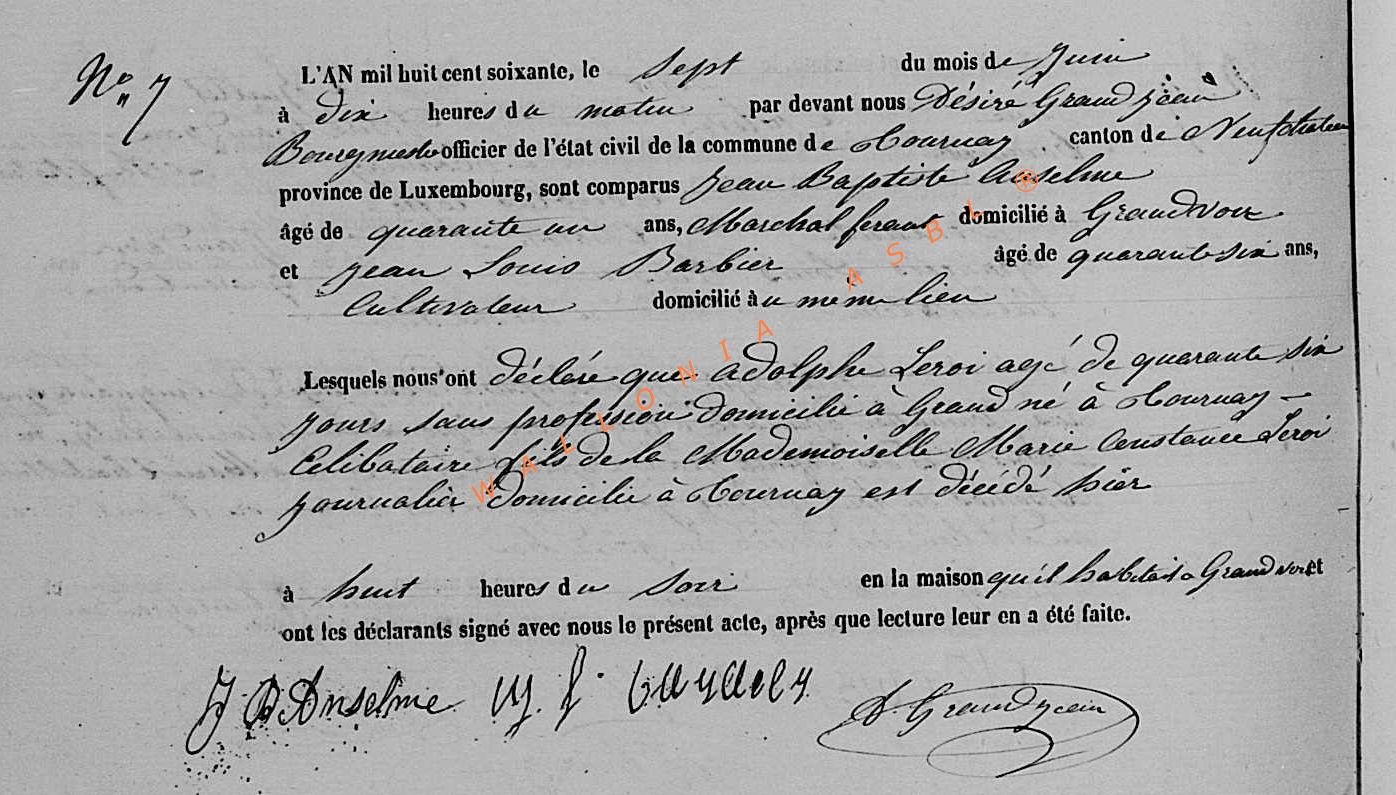 No 7
L'AN mil huit cent soixante, le sept du mois de Juin
à dix heures du matin par devant nous Désiré Grandjean
Bourgmestre officier de l'état civil de la commune de Tournay canton de Neufchateau
province de Luxembourg, sont comparus Jean Baptiste Anselme
âgé de quarante un ans, Marchal ferant domicilié à Grandvoir
et Jean Louis Barbier âgé de quarante six ans,
Cultivateur domicilié à u meme lieu
Lesquels nous ont déclaré que adolphe Leroi agé de quarante six
jours sans profession domicilié à Grand né à Tournay –
Celibataire fils de la Mademoiselle Marie Constance Leroi
journalier domicilié à Tournay est décédé hier
à huit heures du soir en la maison qu'il habitait a Grandvoir et
ont les déclarants signé avec nous le présent acte, après que lecture leur en a été faite.
J B Anselme D. Grandjean
WALLONIA ASBL